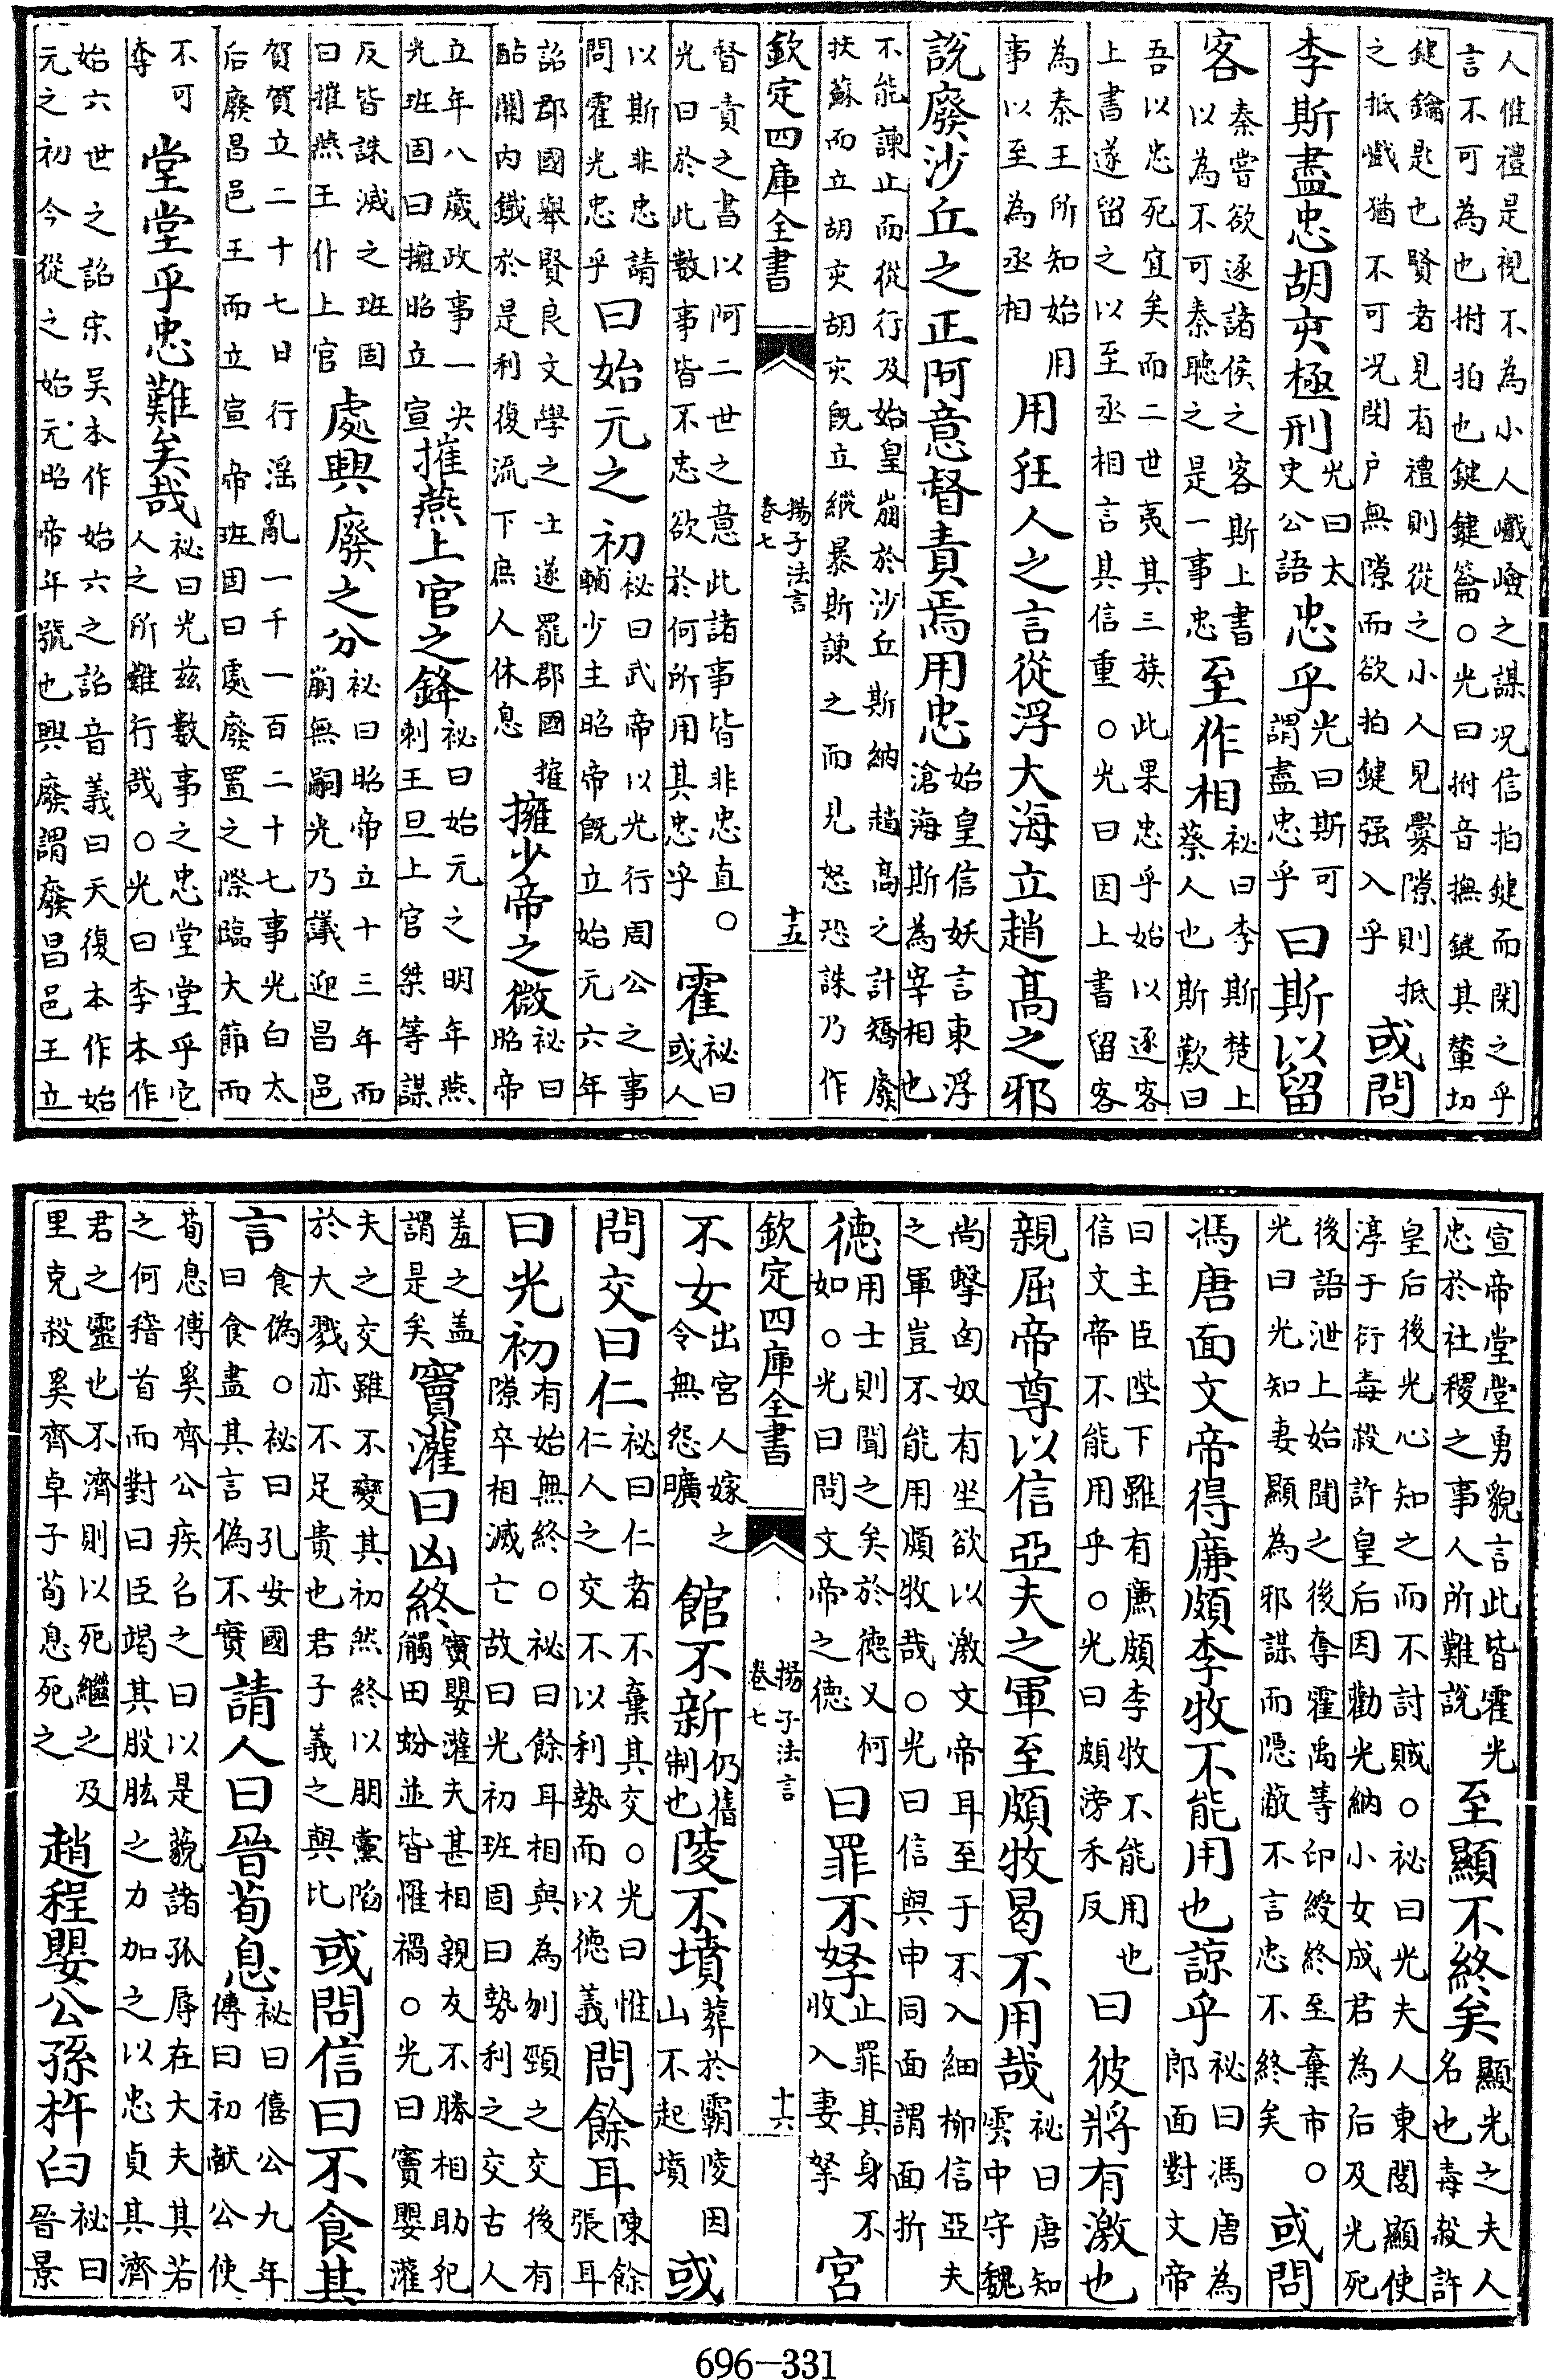 人惟禮是視不為小人巇嶮之謀况信拍鍵而閉之乎
言不可為也拊拍也鍵鍵籥○光曰拊音撫鍵其輦切
鍵鑰是也賢者見有禮則從之小人見釁隙則抵
之抵巇猶不可况閉户無隙而欲拍鍵强入乎 或問
李斯盡忠胡亥極刑 光曰太史公語 忠乎 光曰斯可謂盡忠乎 曰斯以留
客 秦嘗欲逐諸侯之客斯上書以為不可秦聽之是一事忠 至作相 祕曰李斯楚上蔡人也斯歎曰
吾以忠死宜矣而二世夷其三族此果忠乎始以逐客
上書遂留之以至丞相言其信重○光曰因上書留客
為秦王所知始用事以至為丞相 用狂人之言從浮大海立趙髙之邪
說廢沙丘之正阿意督責焉用忠 始皇信妖言東浮滄海斯為宰相也
不能諫止而從行及始皇崩於沙丘斯納趙高之計矯廢
扶蘇而立胡亥胡亥既立縱暴斯諫之而見怒恐誅乃作
欽定四庫全書 揚子法言 卷七 十五
督責之書以阿二世之意此諸事皆非忠直○
光曰於此數事皆不忠欲於何所用其忠乎 霍 祕曰或人
以斯非忠請問霍光忠乎 曰始元之初 祕曰武帝以光行周公之事輔少主昭帝既立始元六年
詔郡國舉賢良文學之士遂罷郡國搉
酤關内鐵於是利復流下庶人休息 擁少帝之微 祕曰昭帝
立年八歲政事一决光班固曰擁昭立宣 摧燕上官之鋒 祕曰始元之明年燕刺王旦上官桀等謀
反皆誅滅之班固曰摧燕王仆上官 處興廢之分 祕曰昭帝立十三年而崩無嗣光乃議迎昌邑
賀賀立二十七日行淫亂一千一百二十七事光白太
后廢昌邑王而立宣帝班固曰處廢置之際臨大節而
不可奪 堂堂乎忠難矣哉 祕曰光兹數事之忠堂堂乎它人之所難行哉○光曰李本作
始六世之詔宋吴本作始六之詔音義曰天復本作始
元之初今從之始元昭帝年號也興廢謂廢昌邑王立
宣帝堂堂勇貌言此皆霍光忠於社稷之事人所難說 至顯不終矣 顯光之夫人名也毒殺許
皇后後光心知之而不討賊○祕曰光夫人東閭顯使
淳于衍毒殺許皇后因勸光納小女成君為后及光死
後語泄上始聞之後奪霍禹等印綬終至棄市○
光曰光知妻顯為邪謀而隱蔽不言忠不終矣 或問
馮唐面文帝得廉頗李牧不能用也諒乎 祕曰馮唐為郎面對文帝
曰主臣陛下雖有廉頗李牧不能用也
信文帝不能用乎○光曰頗滂禾反 曰彼將有激也
親屈帝尊以信亞夫之軍至頗牧曷不用哉 祕曰唐知雲中守魏
尚擊匈奴有坐欲以激文帝耳至于不入細柳信亞夫
之軍豈不能用頗牧哉○光曰信與申同面謂面折
德 用士則聞之矣於德又何如○光曰問文帝之德 曰罪不孥 止罪其身不收入妻孥 宮
欽定四庫全書 揚子法言 卷七 十六
不女 出宮人嫁之令無怨曠 館不新 仍舊制也 陵不墳 葬於霸陵因山不起墳 或
問交曰仁 祕曰仁者不棄其交○光曰惟仁人之交不以利勢而以德義 問餘耳 陳餘張耳
曰光初 有始無終○祕曰餘耳相與為刎頸之交後有隙卒相滅亡故曰光初班固曰勢利之交古人
羞之盖謂是矣 竇灌曰凶終 竇嬰灌夫甚相親友不勝相助犯觸田蚡並皆惟禍○光曰竇嬰灌
夫之交雖不變其初然終以朋黨陷於大戮亦不足貴也君子義之與比 或問信曰不食其
言 食偽○祕曰孔安國曰食盡其言偽不實 請人曰晉荀息 祕曰僖公九年傳曰初献公使
荀息傅奚齊公疾召之曰以是藐諸孤辱在大夫其若
之何稽首而對曰臣竭其股肱之力加之以忠貞其濟
君之靈也不濟則以死繼之及里克殺奚齊卓子荀息死之 趙程嬰公孫杵臼 祕曰晉景
696-331